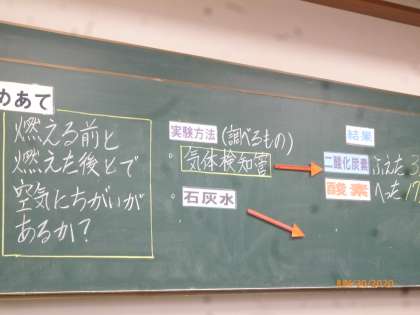 めあて
燃える前と
燃えた後とで
空気にちがいが
あるか?
実験方法(調べるもの)
・気体検知管
・石灰水
結果
二酸化炭素 ふえた
酸素 へった